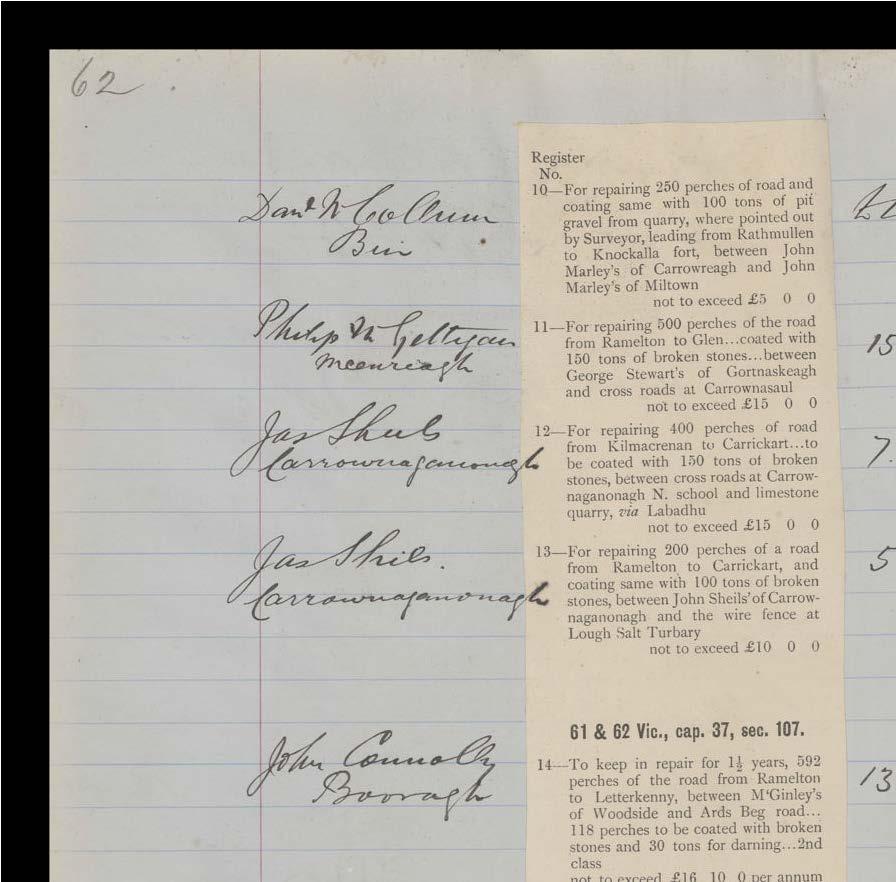 62
Register
No.
Danl McCollum
Bin
10—For repairing 250 perches of road and
coating same with 100 tons of pit
gravel from quarry, where pointed out
by Surveyor, leading from Rathmullen
to Knockalla fort, between John
Marley's of Carrowreagh and John
Marley's of Miltown
not to exceed £5 0 0
Philip McGettigan
Meenreagh
15
11—For repairing 500 perches of the road
from Ramelton to Glen...coated with
150 tons of broken stones...between
George Stewart's of Gortnaskeagh
and cross roads at Carrownasaul
not to exceed £15 0 0
Jas Sheils
Carrownaganonagh
7.
12—For repairing 400 perches of road
from Kilmacrenan to Carrickart...to
be coated with 150 tons of broken
stones, between cross roads at Carrow-
naganonagh N. school and limestone
quarry, via Labadhu
not to exceed £15 0 0
Jas Shiels.
Carrownaganonagh
5
13—For repairing 200 perches of a road
from Ramelton to Carrickart, and
coating same with 100 tons of broken
stones, between John Sheils' of Carrow-
naganonagh and the wire fence at
Lough Salt Turbary
not to exceed £10 0 0
61 & 62 Vic., cap. 37, sec. 107.
John Connolly
Booragh
13
14—To keep in repair for 1½ years, 592
perches of the road from Ramelton
to Letterkenny, between M‘Ginley's
of Woodside and Ards Beg road...
118 perches to be coated with broken
stones and 30 tons for darning...2nd
class
not to exceed £16 10 0 per annum